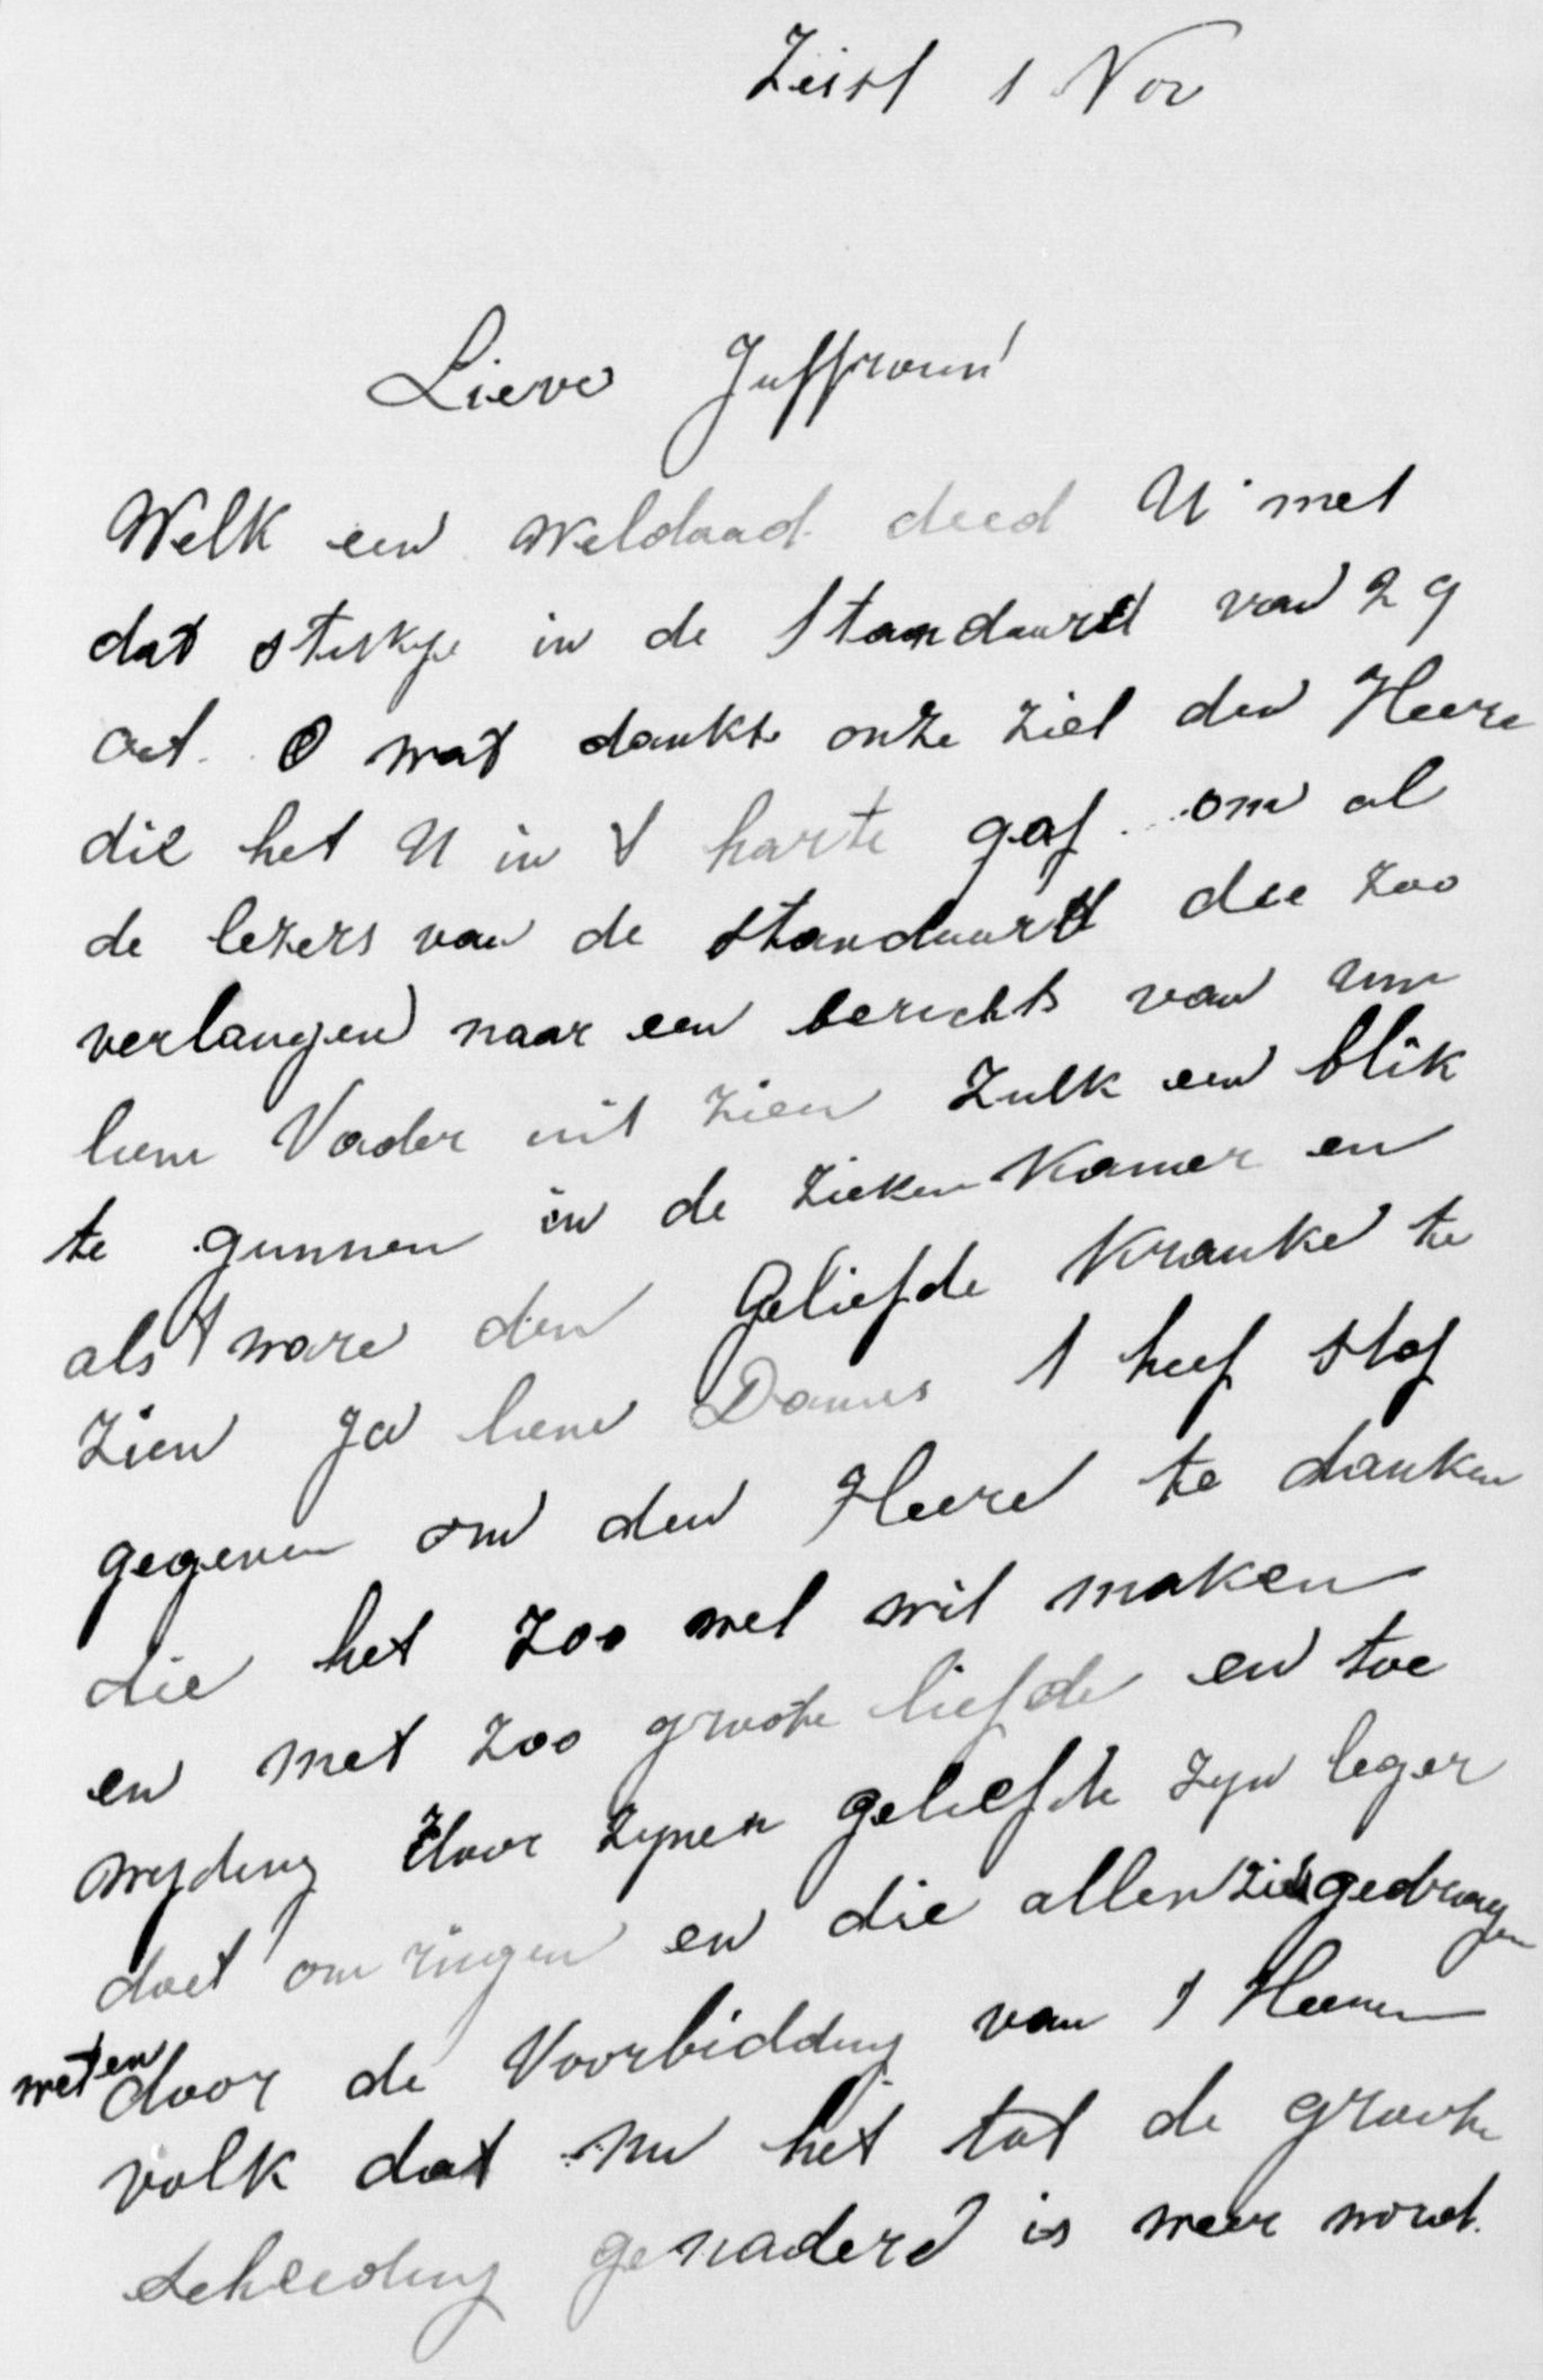 Zeist 1 Nov
Lieve Juffrouw!
Welk een weldaad deed U met
dat stukje in de Standaard van 29
Oct. O wat dankte onze ziel den Heere
die het U in 't harte gaf om al
de lezers van de standaard die zoo
verlangen naar een berichts van uw
lieve Vader uit zien zulk een blik
te gunnen in de zieken Kamer en
als 't ware den Geliefde Kranke te
zien Ja lieve Dames 't heef stof
gegeven om den Heere te danken
die het zoo wel wil maken
en met zoo groote liefde en toe
wyding door zynen geliefde zyn leger
doet om ringen en die allen zich gedragen
weten door de Voorbidding van 's Heeren
volk dat nu het tot de groote
scheiding genaderd is weer wordt.